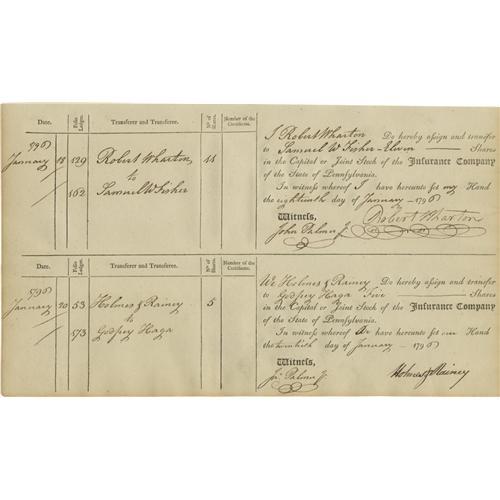 Date. Folio Ledger. Transferer and Transferee. No of Shares. Number of the Certificate.
796
January 18 129 Robert Wharton 11
to
162 Samuel W Fisher
I Robert Wharton Do hereby assign and transfer
to Samuel W Fisher Elevn Shares
in the Capital or Joint Stock of the Insurance Company
of the State of Pennsylvania.
In witness whereof I have hereunto set my Hand
the eighteenth day of January 1796
Witness, Robert Wharton
John Palmer Jr
Date. Folio Ledger. Transferer and Transferee. No of Shares. Number of the Certificate.
1796
January 20 53 Holmes & Rainey 5
to
173 Godfrey Haga
We Holmes & Rainey Do hereby assign and transfer
to Godfrey Haga Five Shares
in the Capital or Joint Stock of the Insurance Company
of the State of Pennsylvania.
In witness whereof We have hereunto set our Hand
the twentieth day of January 1796
Witness,
Jn Palmer Jr Holmes & Rainey